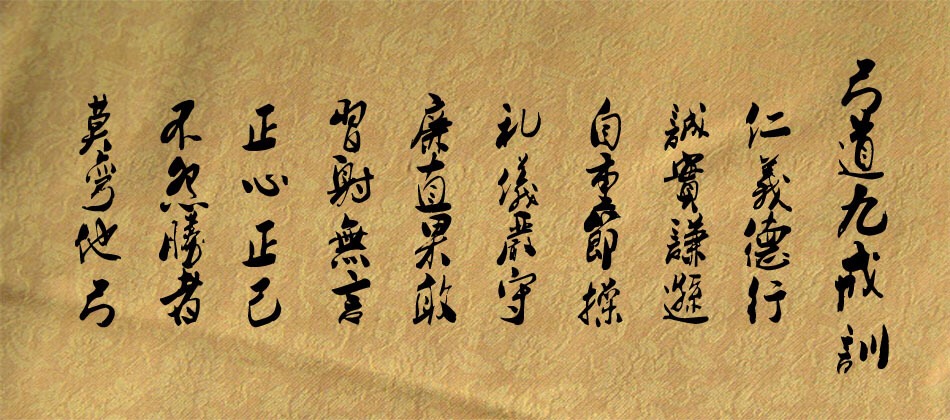 弓道九戒訓
仁義德行
誠實謙遜
自重節操
礼儀嚴守
廉直果敢
習射無言
正心正己
不怨勝者
莫彎他弓